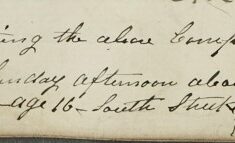 ing the above Comp
unday afternoon abo
age 16 - South Street